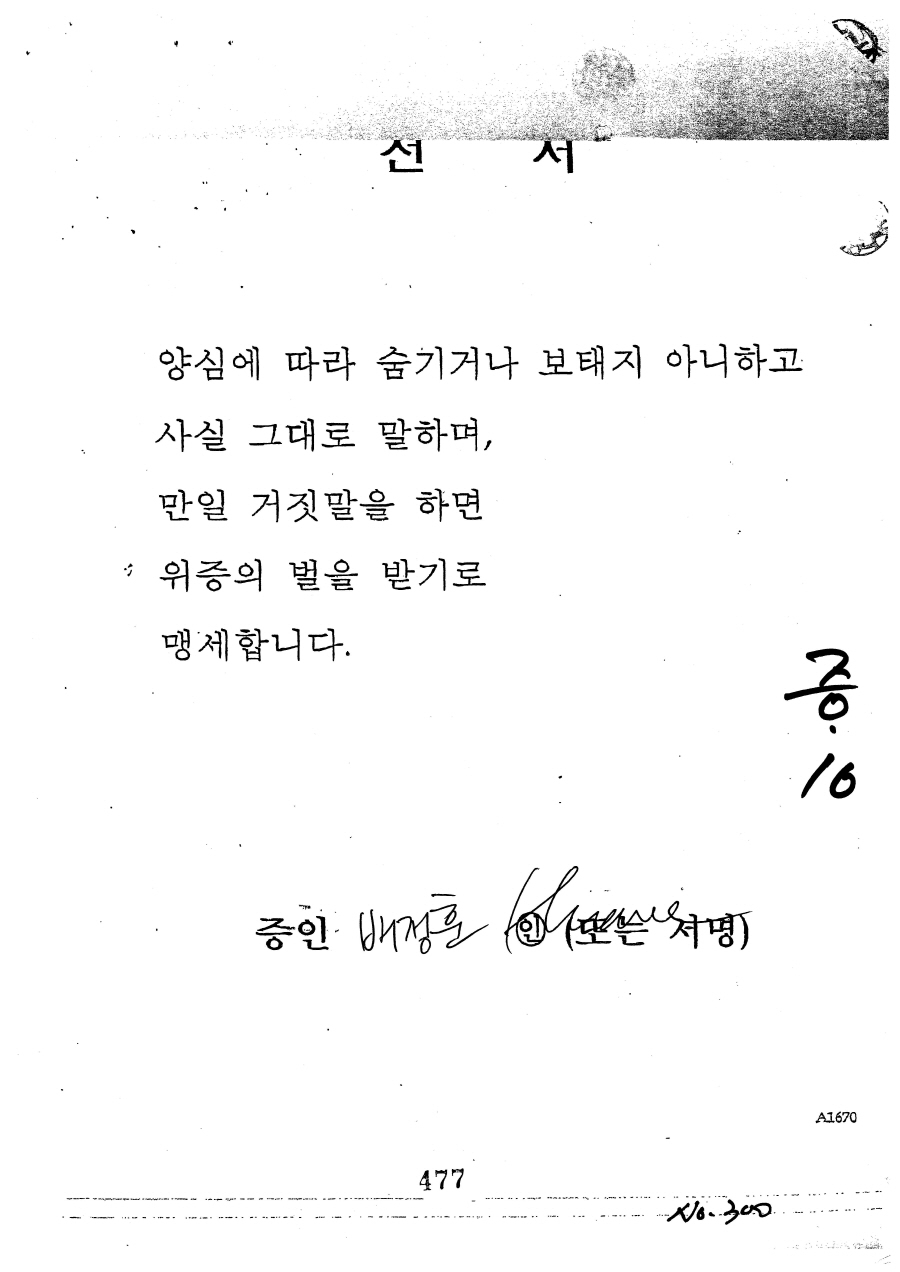 선 서
양심에 따라 숨기거나 보태지 아니하고
사실 그대로 말하며,
만일 거짓말을 하면
위증의 벌을 받기로
맹세합니다.
증.
10
증인 배정훈 인 (또는 서명)
A1670
477
No. 300